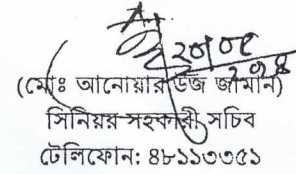 (মোঃ আনোয়ার উজ জামান)
সিনিয়র সহকারী সচিব
টেলিফোন: ৪৮১১৩৩৫১